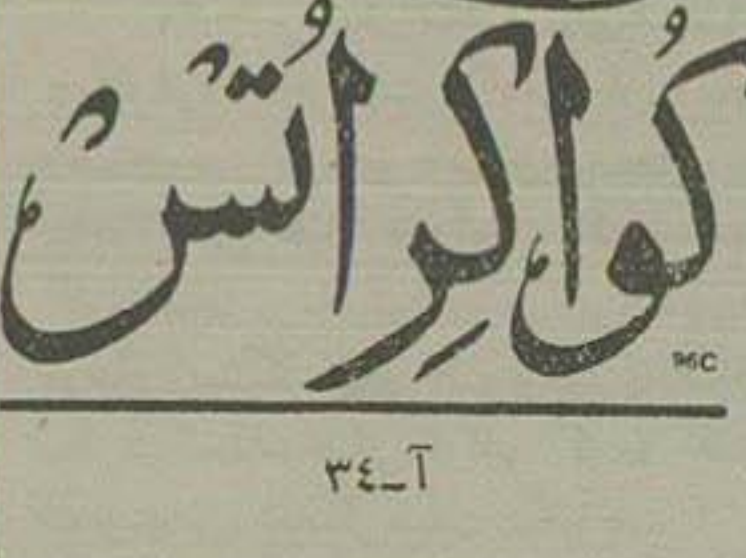 كُواكِر اُتْسْ
آ-٣٤